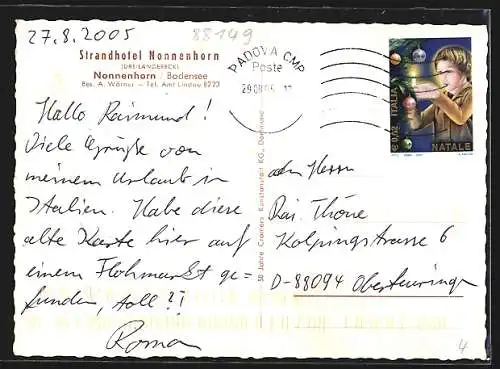 27.8.2005
88149
Strandhotel Nonnenhorn
(DREI-LÄNDERECK)
Nonnenhorn / Bodensee
Bes. A. Wörner - Tel. Amt Lindau 8223
PADOVA CMP
Poste
ITALIA € 0,62
NATALE
Hallo Raimund!
Viele Grüße von
meinem Urlaub in
Italien. Habe diese
alte Karte hier auf
einem Flohmarkt ge=
funden, toll?!
Roman
50 Jahre Cramers Kunstanstalt KG., Dortmund
den Herrn
Rai. Thöne
Kolpingstrasse 6
D-88094 Oberteuringen
4